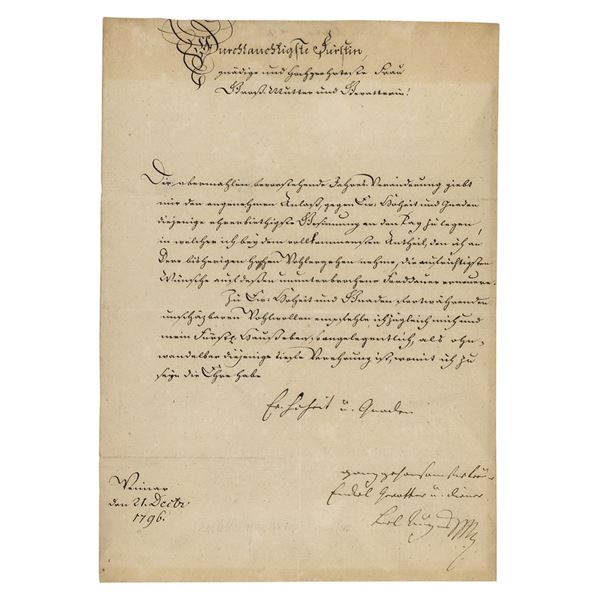 Durchlauchtigste Fürstin,
gnädige und Hochgeehrteste Frau
Groß-Mutter und Gevatterin!
Die abermahlen bevorstehende Jahres-Veränderung giebt
mir den angenehmen Anlaß, gegen Ew. Hoheit und Gnaden
diejenige ehrerbiethigste Gesinnung an den Tag zu legen,
in welcher ich bey dem vollkommensten Antheil, den ich an
Dero bisherigen hohen Wohlergehen nehme, die aufrichtigsten
Wünsche auf deßen ununterbrochene Fortdauer erneuere.
Zu Ew. Hoheit und Gnaden fortwährenden
unschäzbaren Wohlwollen empfehle ich zugleich mich und
mein Fürstl. Hauß eben so angelegentlich als ohn-
wandelbar diejenige tiefste Verehrung ist, womit ich zu
seyn die Ehre habe
Ew. Hoheit u. Gnaden
Weimar
den 21. Decbr.
1796.
ganz gehorsamster
Enckel Gevatter u. Diener
Carl August